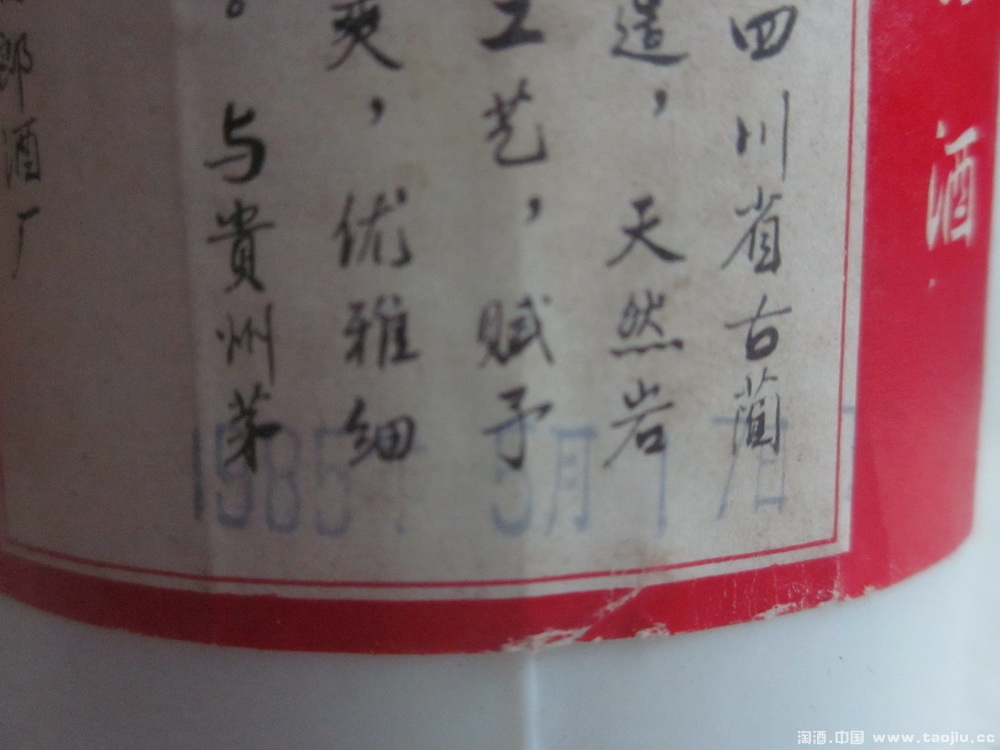 酒
四川省古蔺
造，天然岩
工艺，赋予
爽，优雅细
。与貴州茅
郎酒厂
1985年5月17日
淘酒.中国 www.taojiu.cc